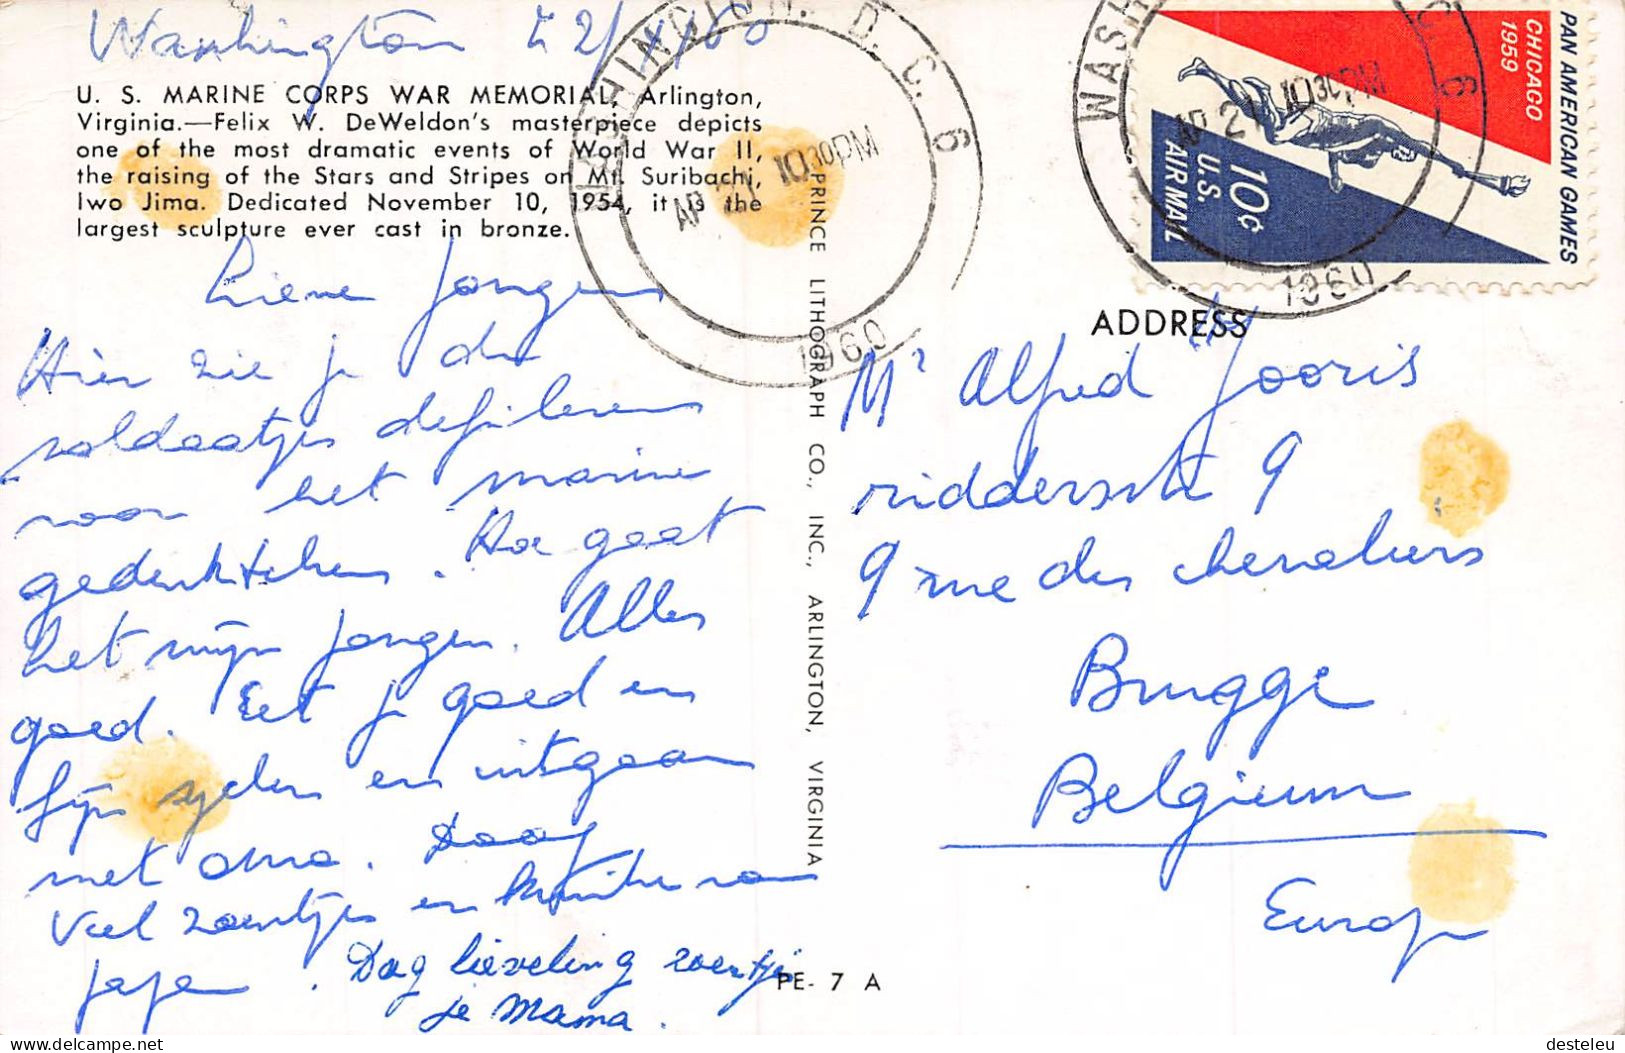 Washington
U. S. MARINE CORPS WAR MEMORIAL, Arlington,
Virginia.—Felix W. DeWeldon's masterpiece depicts
one of the most dramatic events of World War II,
the raising of the Stars and Stripes on Mt. Suribachi,
Iwo Jima. Dedicated November 10, 1954, it is the
largest sculpture ever cast in bronze.
Lieve Jongen
Hier zie je de
soldaatjes defileren
voor het marine
gedenkteken. Hoe gaat
het mijn jongen. Alles
goed. Eet je goed en
fijn spelen en uitgaan
met oma. Daag
Veel zoentjes en van
papa.
Dag lieveling zoentjes
je Mama.
PRINCE LITHOGRAPH CO., INC., ARLINGTON, VIRGINIA
PE- 7 A
WASHINGTON, D. C. 6
AP 21 10 30 PM
1960
WASH C. 6
AP 21 10 30 PM
1960
PAN AMERICAN GAMES
CHICAGO
1959
10¢
U.S.
AIR MAIL
ADDRESS
Mr Alfred Jooris
ridderstr 9
9 rue des chevaliers
Brugge
Belgium
Europ
desteleu